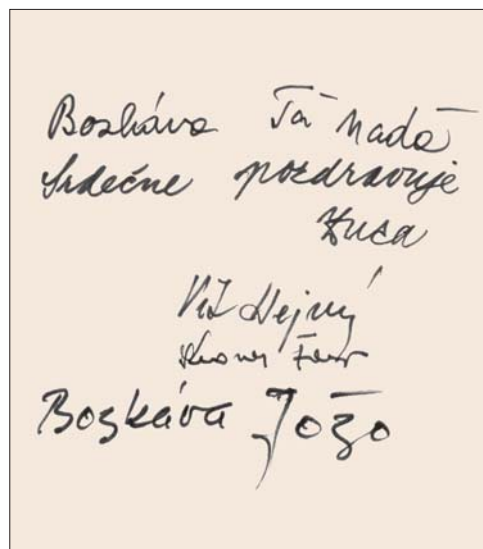 Bozkáva Ťa Naďa
Srdečne pozdravuje
Zuza
Vít Hejný
Bozkáva Jožo